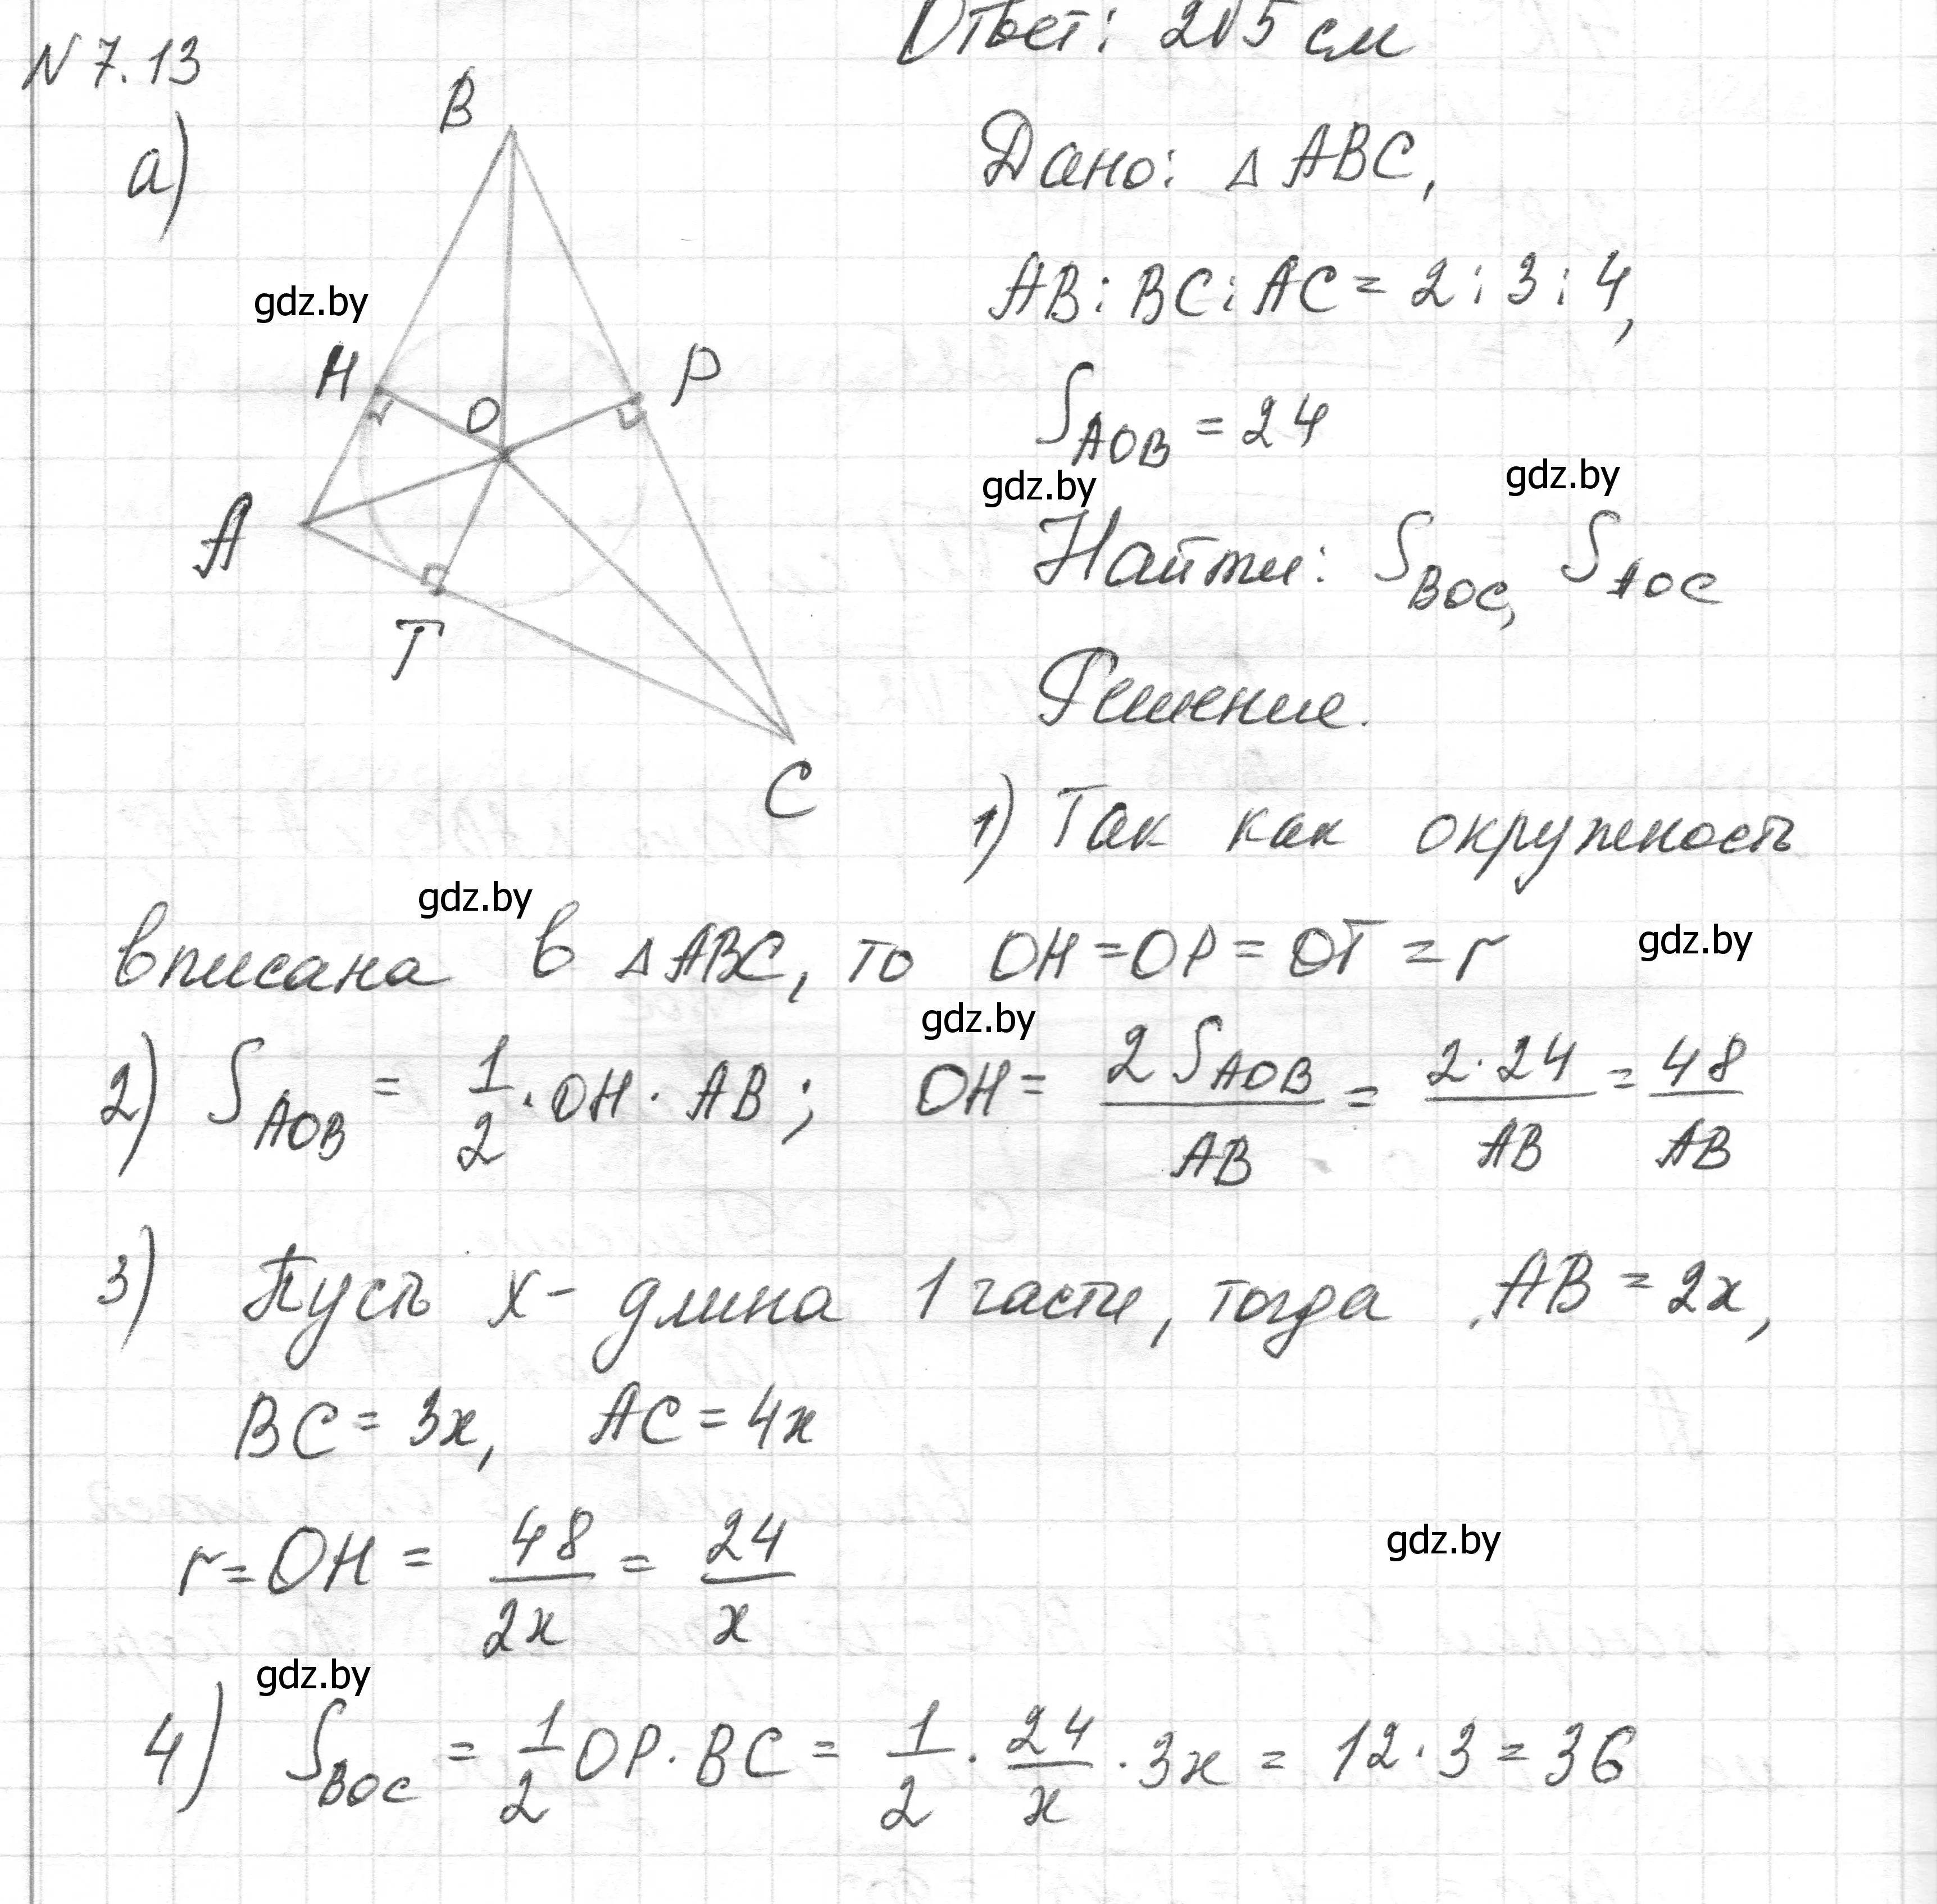 Ответ: 2√5 см
N 7.13
а)
B
H
O
P
A
T
C
Дано: △ ABC,
AB : BC : AC = 2 : 3 : 4,
gdz.by
S_AOB = 24
gdz.by gdz.by
Найти: S_BOC, S_AOC
Решение.
1) Так как окружность
gdz.by
вписана в △ ABC, то OH = OP = OT = r
gdz.by
gdz.by
2) S_AOB = 1/2 · OH · AB; OH = 2 S_AOB / AB = 2·24 / AB = 48 / AB
3) Пусть x - длина 1 части, тогда AB = 2x,
BC = 3x, AC = 4x
r = OH = 48 / 2x = 24 / x
gdz.by
gdz.by
4) S_BOC = 1/2 OP · BC = 1/2 · 24/x · 3x = 12 · 3 = 36